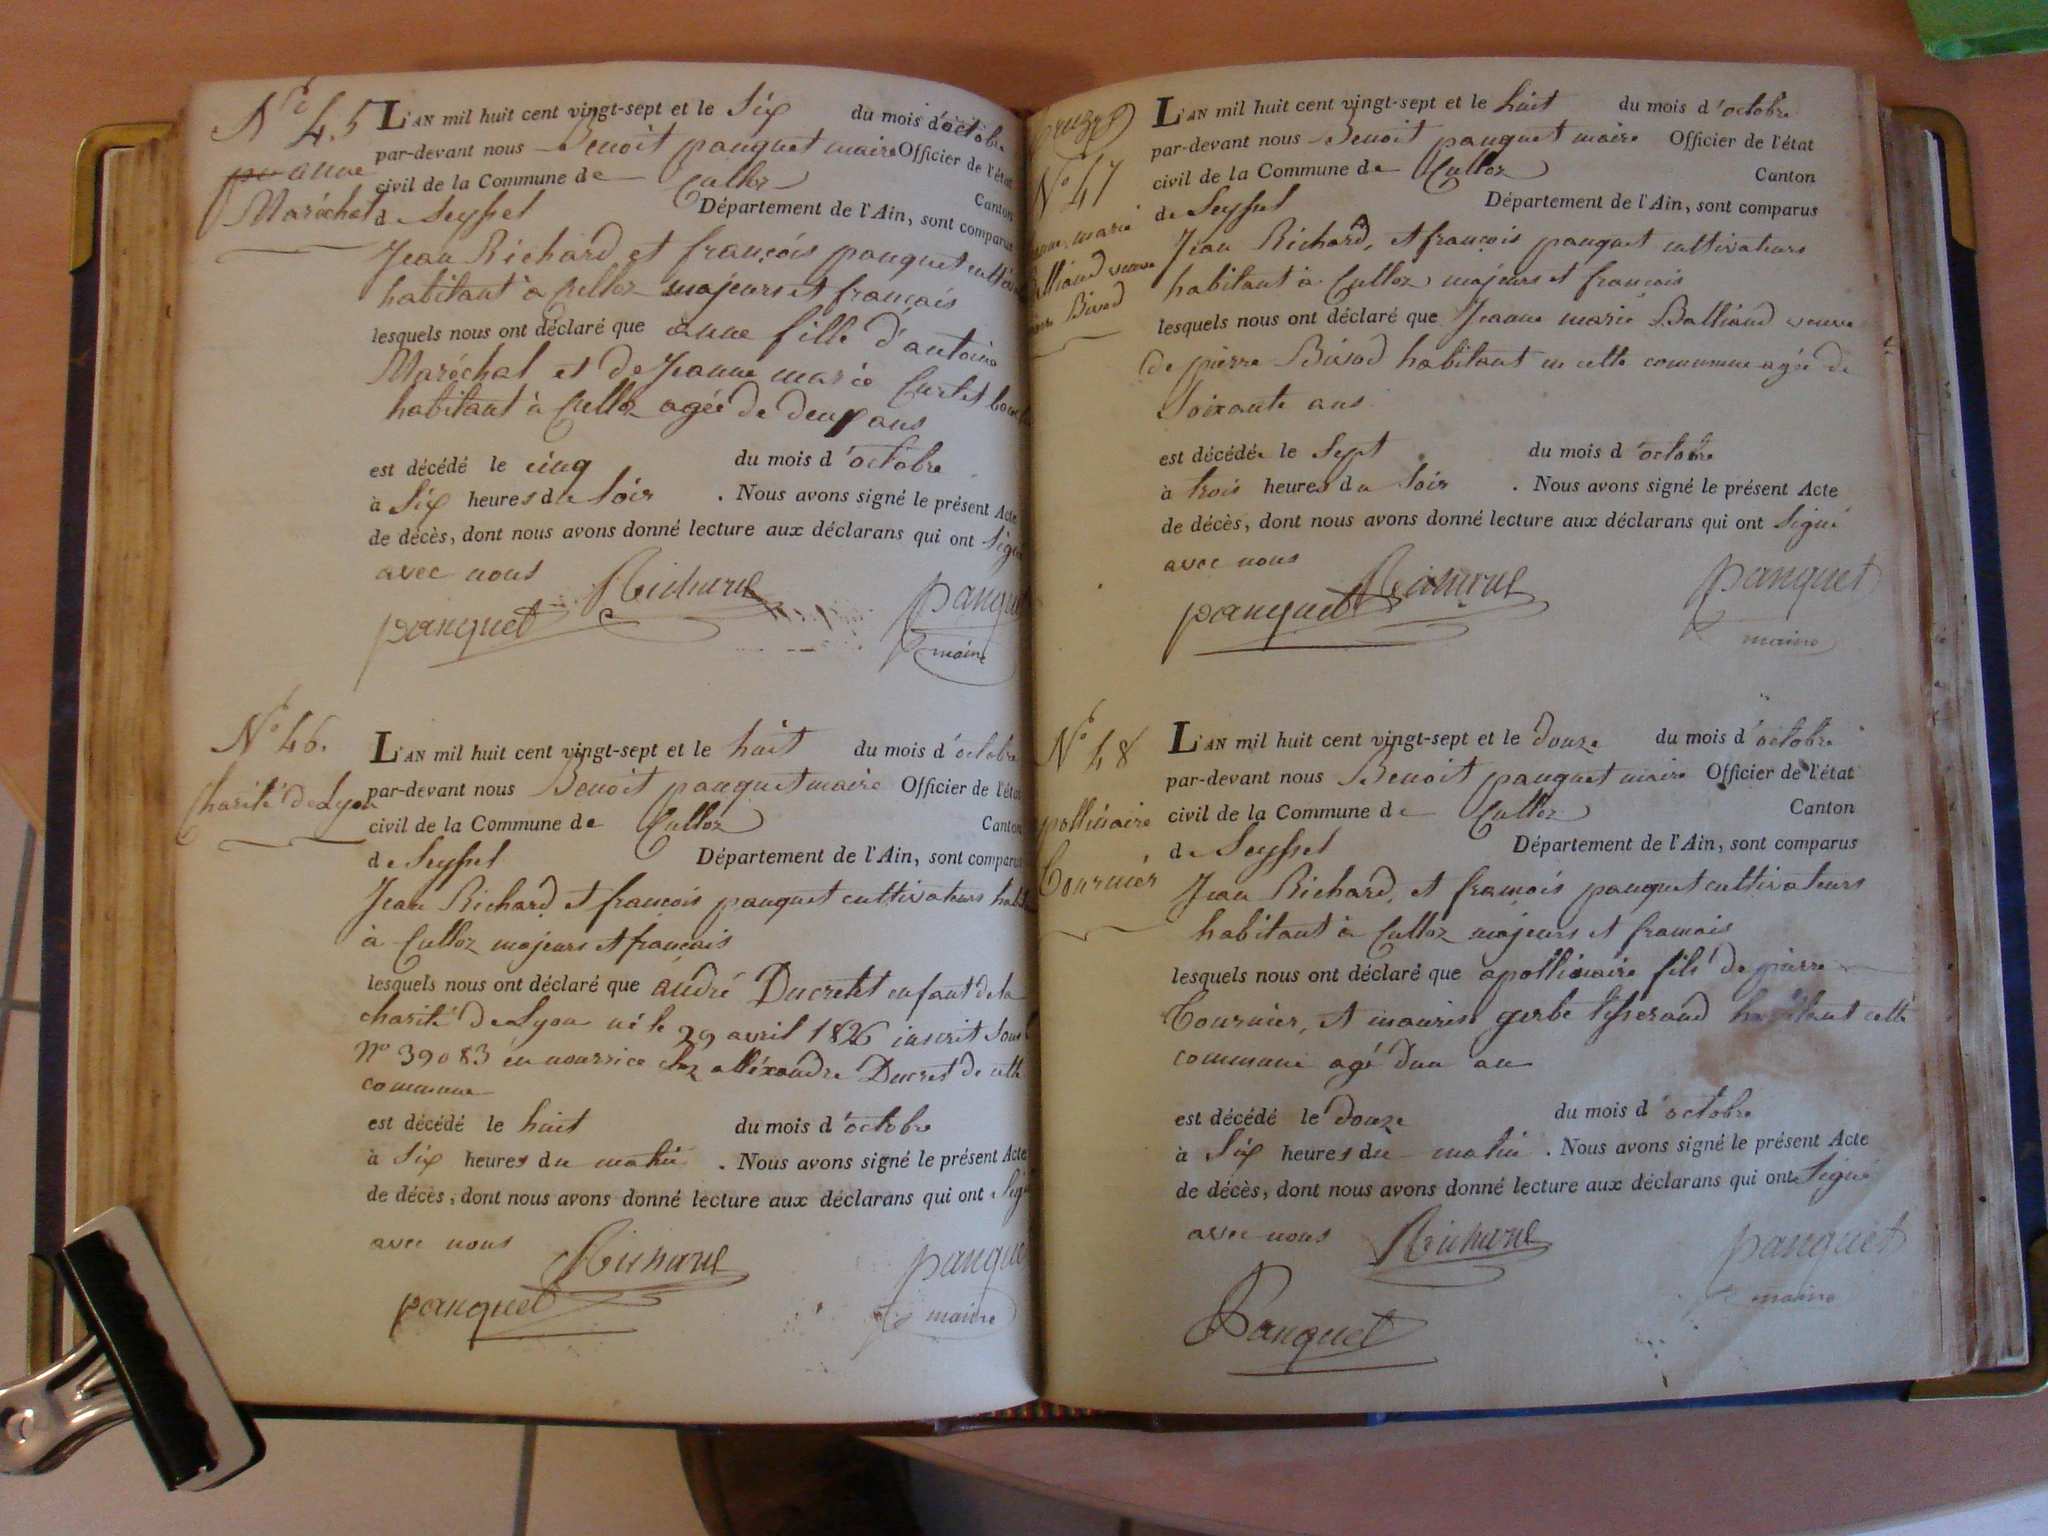 No 45
anne
Maréchal
L'AN mil huit cent vingt-sept et le Six du mois d'octobre
par-devant nous Benoit panquet maire Officier de l'état
civil de la Commune de Culloz Canton
de Seyssel Département de l'Ain, sont comparus
Jean Richard et françois panquet
habitant à Culloz majeurs et français
lesquels nous ont déclaré que anne fille d'antoine
Maréchal et de Jeanne marie Curtet
habitant à Culloz agée de deux ans
est décédé le cinq du mois d'octobre
à Six heures du Soir . Nous avons signé le présent Acte
de décès, dont nous avons donné lecture aux déclarans qui ont Signé
avec nous Richard panquet
panquet maire
No 46.
Charité de Lyon
L'AN mil huit cent vingt-sept et le huit du mois d'octobre
par-devant nous Benoit panquet maire Officier de l'état
civil de la Commune de Culloz Canton
de Seyssel Département de l'Ain, sont comparus
Jean Richard et françois panquet cultivateurs
à Culloz majeurs et français
lesquels nous ont déclaré que andré Ducretet enfant de la
charité de Lyon né le 29 avril 1826 inscrit Sous
no 39083 en nourrice chez alléxandre Ducret de cette
commune
est décédé le huit du mois d'octobre
à Six heures du matin . Nous avons signé le présent Acte
de décès, dont nous avons donné lecture aux déclarans qui ont Signé
avec nous Richard panquet
panquet maire
No 47
marie
Balliand veuve
Bivod
L'AN mil huit cent vingt-sept et le huit du mois d'octobre
par-devant nous Benoit panquet maire Officier de l'état
civil de la Commune de Culloz Canton
de Seyssel Département de l'Ain, sont comparus
Jean Richard, et françois panquet cultivateurs
habitant à Culloz majeurs et français
lesquels nous ont déclaré que Jeanne marie Balliand veuve
de pierre Bivod habitant en cette commune agée de
Soixante ans
est décédée le Sept du mois d'octobre
à trois heures du Soir . Nous avons signé le présent Acte
de décès, dont nous avons donné lecture aux déclarans qui ont Signé
avec nous Richard panquet
panquet maire
No 48
apollinaire
Tournier
L'AN mil huit cent vingt-sept et le douze du mois d'octobre
par-devant nous Benoit panquet maire Officier de l'état
civil de la Commune de Culloz Canton
de Seyssel Département de l'Ain, sont comparus
Jean Richard, et françois panquet cultivateurs
habitant à Culloz majeurs et français
lesquels nous ont déclaré que apollinaire fils de pierre
Tournier, et maurise gerbe tisserand habitant cette
commune agé dun an
est décédé le douze du mois d'octobre
à Six heures du matin . Nous avons signé le présent Acte
de décès, dont nous avons donné lecture aux déclarans qui ont Signé
avec nous Richard panquet
Panquet maire